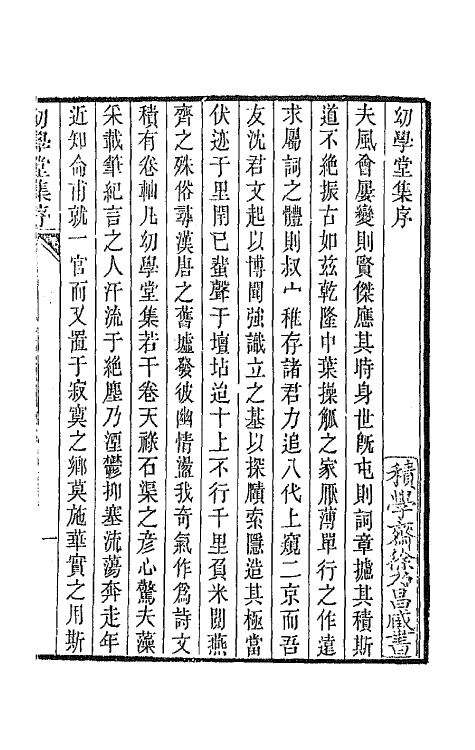 幼學堂集序
積學齋徐乃昌藏書
夫風會屢變則賢傑應其時身世旣屯則詞章攄其積斯
道不絶振古如兹乾隆中葉操觚之家厭薄單行之作遠
求屬詞之體則叔宀稚存諸君力追八代上窺二京而吾
友沈君文起以博聞強識立之基以探賾索隱造其極當
伏迹于里閈已蜚聲于壇坫迨十上不行千里負米閱燕
齊之殊俗尋漢唐之舊墟發彼幽情盪我奇氣作爲詩文
積有卷軸凡幼學堂集若干卷天祿石渠之彥心驚夫藻
采載筆紀言之人汗流于絶塵乃湮鬱抑塞流蕩奔走年
近知命甫就一官而又置于寂寞之鄉莫施華實之用斯
幼學堂集序
一